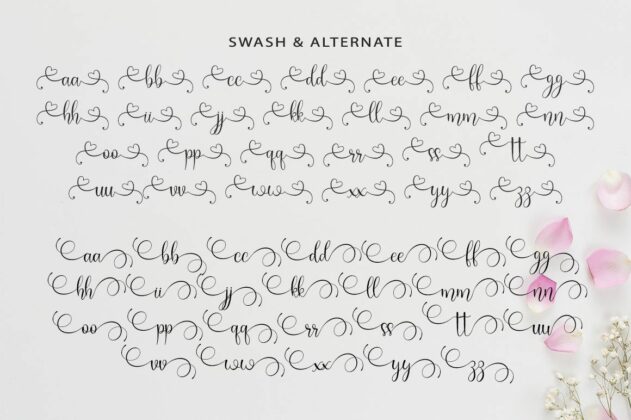 SWASH & ALTERNATE
aa bb cc dd ee ff gg
hh ii jj kk ll mm nn
oo pp qq rr ss tt
uu vv ww xx yy zz
aa bb cc dd ee ff gg
hh ii jj kk ll mm nn
oo pp qq rr ss tt uu
vv ww xx yy zz